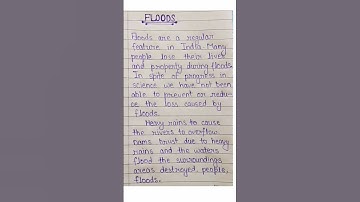 FLOODS
Floods are a regular
feature in India. Many
people lose their lives
and property during floods.
In spite of progress in
science we have not been
able to prevent or reduc
ce the loss caused by
floods.
Heavy rains to cause
the rivers to overflow.
Dams burst due to heavy
rains and the waters
flood the surroundings
areas destroyed, people,
floods.